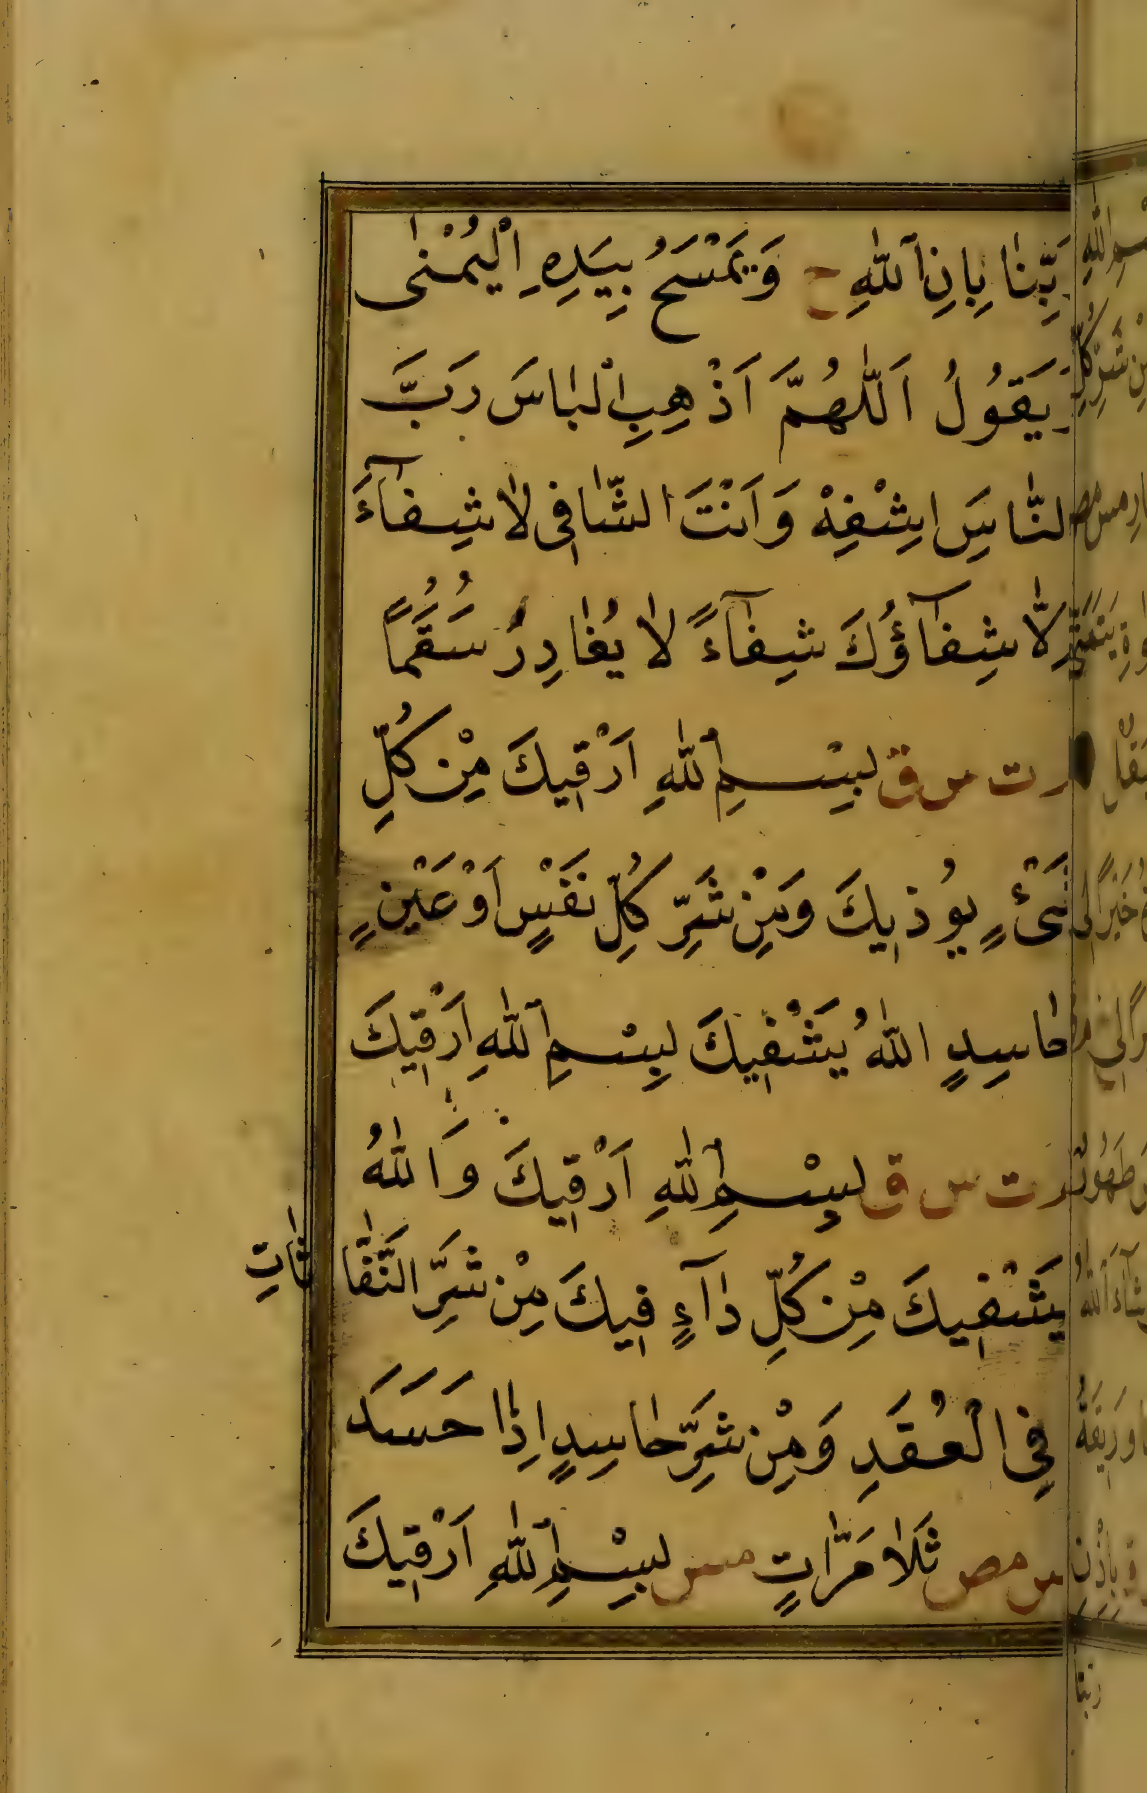 رَبِّنَا بِاِذْنِ اللّٰهِ خ وَيَمْسَحُ بِيَدِهِ الْيُمْنٰى
وَيَقُولُ اَللّٰهُمَّ اَذْهِبِ الْبَاسَ رَبَّ
النَّاسِ اشْفِهْ وَاَنْتَ الشَّافِى لَا شِفَآءَ
اِلَّا شِفَآؤُكَ شِفَآءً لَا يُغَادِرُ سُقْمًا
م ت س ق بِسْمِ اللّٰهِ اَرْقِيكَ مِنْ كُلِّ
شَىْءٍ يُوذِيكَ وَمِنْ شَرِّ كُلِّ نَفْسٍ اَوْ عَيْنٍ
حَاسِدٍ اللّٰهُ يَشْفِيكَ بِسْمِ اللّٰهِ اَرْقِيكَ
م ت س ق بِسْمِ اللّٰهِ اَرْقِيكَ وَاللّٰهُ
يَشْفِيكَ مِنْ كُلِّ دَآءٍ فِيكَ مِنْ شَرِّ النَّفَّاثَاتِ
فِى الْعُقَدِ وَمِنْ شَرِّ حَاسِدٍ اِذَا حَسَدَ
س مص ثَلَاثَ مَرَّاتٍ مس بِسْمِ اللّٰهِ اَرْقِيكَ